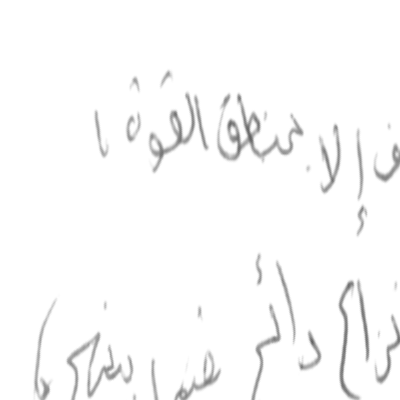 إلا بمنطق القوة
نزاع دائم فيما بينهم